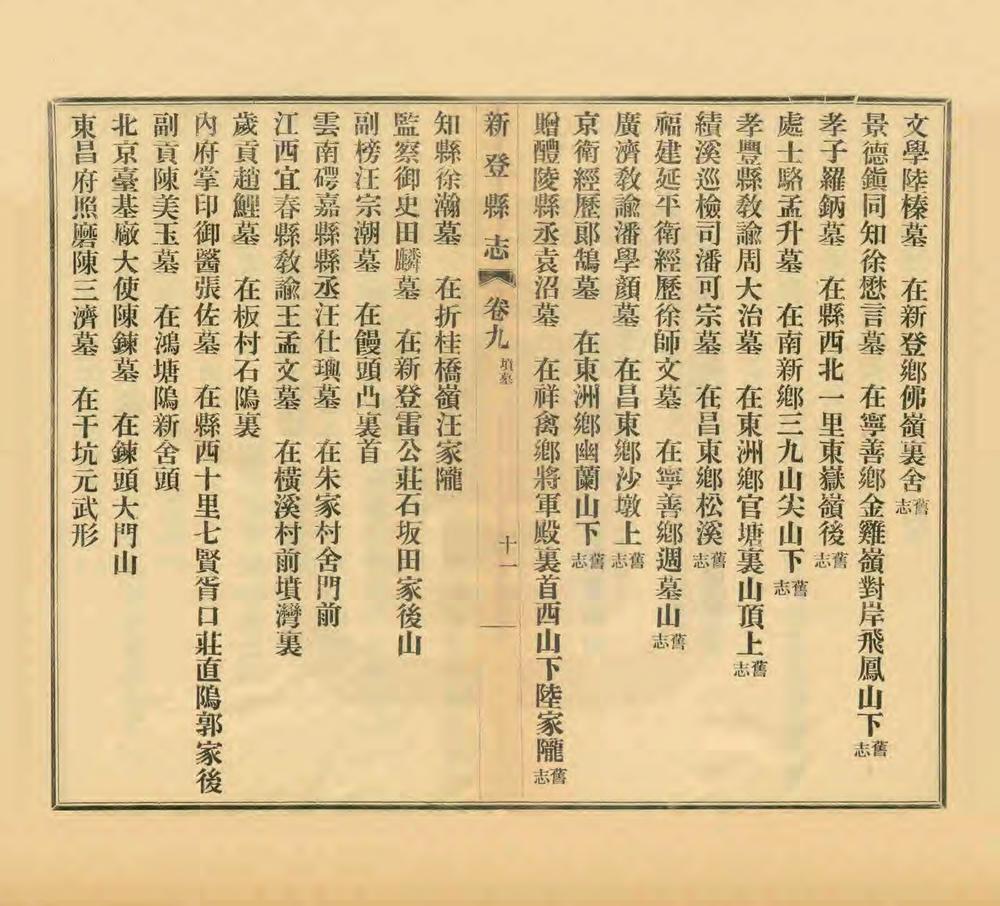 文學陸榛墓　在新登鄉佛嶺裏舍舊志
景德鎭同知徐懋言墓　在寧善鄉金雞嶺對岸飛鳳山下舊志
孝子羅鈵墓　在縣西北一里東嶽嶺後舊志
處士駱孟升墓　在南新鄉三九山尖山下舊志
孝豐縣敎諭周大治墓　在東洲鄉官塘裏山頂上舊志
績溪巡檢司潘可宗墓　在昌東鄉松溪舊志
福建延平衛經歷徐師文墓　在寧善鄉週墓山舊志
廣濟敎諭潘學顏墓　在昌東鄉沙墩上舊志
京衛經歷郞鵠墓　在東洲鄉幽蘭山下舊志
贈醴陵縣丞袁沼墓　在祥禽鄉將軍殿裏首西山下陸家隴舊志
新登縣志　卷九　墳墓　十一
知縣徐瀚墓　在折桂橋嶺汪家隴
監察御史田麟墓　在新登雷公莊石坂田家後山
副榜汪宗潮墓　在饅頭凸裏首
雲南碍嘉縣縣丞汪仕璵墓　在朱家村舍門前
江西宜春縣敎諭王孟文墓　在橫溪村前墳灣裏
歲貢趙鯉墓　在板村石隝裏
內府掌印御醫張佐墓　在縣西十里七賢胥口莊直隝郭家後
副貢陳美玉墓　在鴻塘隝新舍頭
北京臺基廠大使陳鍊墓　在鍊頭大門山
東昌府照磨陳三濟墓　在干坑元武形